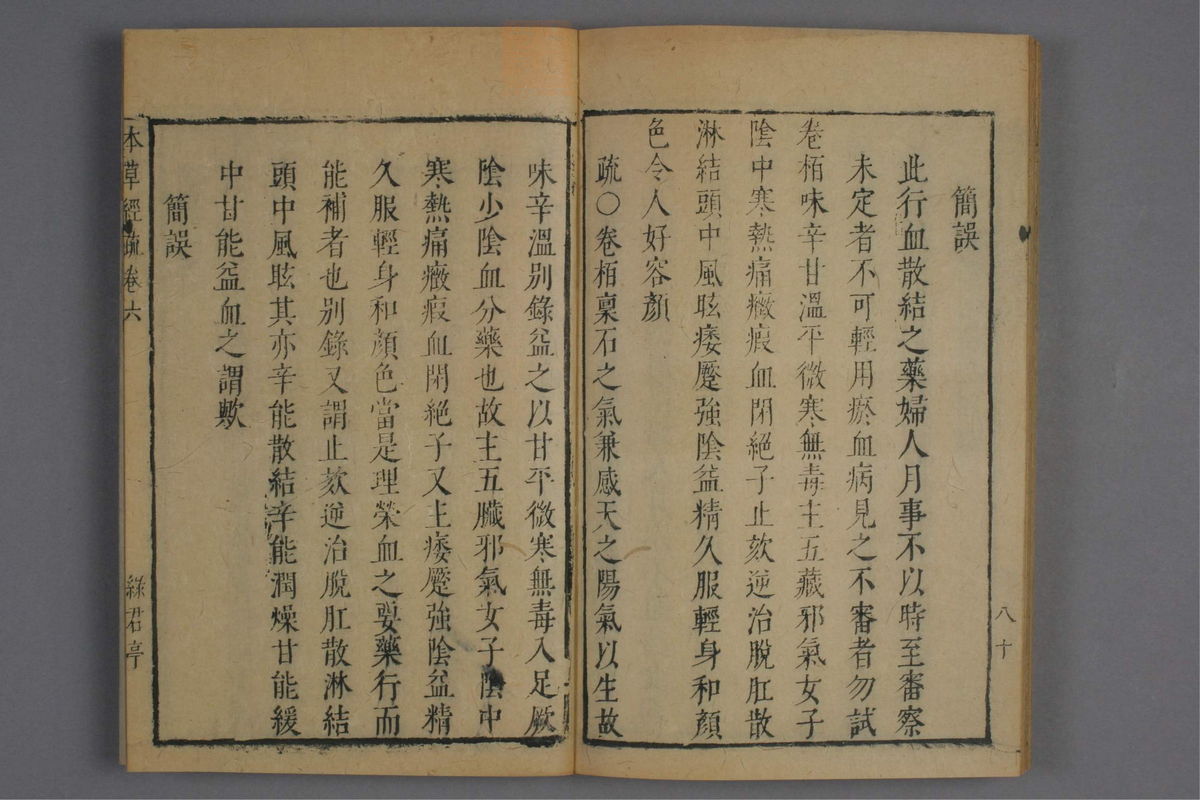 簡誤
此行血散結之藥婦人月事不以時至審察
未定者不可輕用瘀血病見之不審者勿試
卷栢味辛甘溫平微寒無毒主五藏邪氣女子
陰中寒熱痛癥瘕血閉絕子止欬逆治脫肛散
淋結頭中風眩痿蹷強陰益精久服輕身和顏
色令人好容顏
疏○卷栢稟石之氣兼感天之陽氣以生故
味辛溫別錄益之以甘平微寒無毒入足厥
陰少陰血分藥也故主五臟邪氣女子陰中
寒熱痛癥瘕血閉絕子又主痿蹷強陰益精
久服輕身和顏色當是理榮血之要藥行而
能補者也別錄又謂止欬逆治脫肛散淋結
頭中風眩其亦辛能散結辛能潤燥甘能緩
中甘能益血之謂歟
簡誤
本草經疏卷六
綠君亭
八十